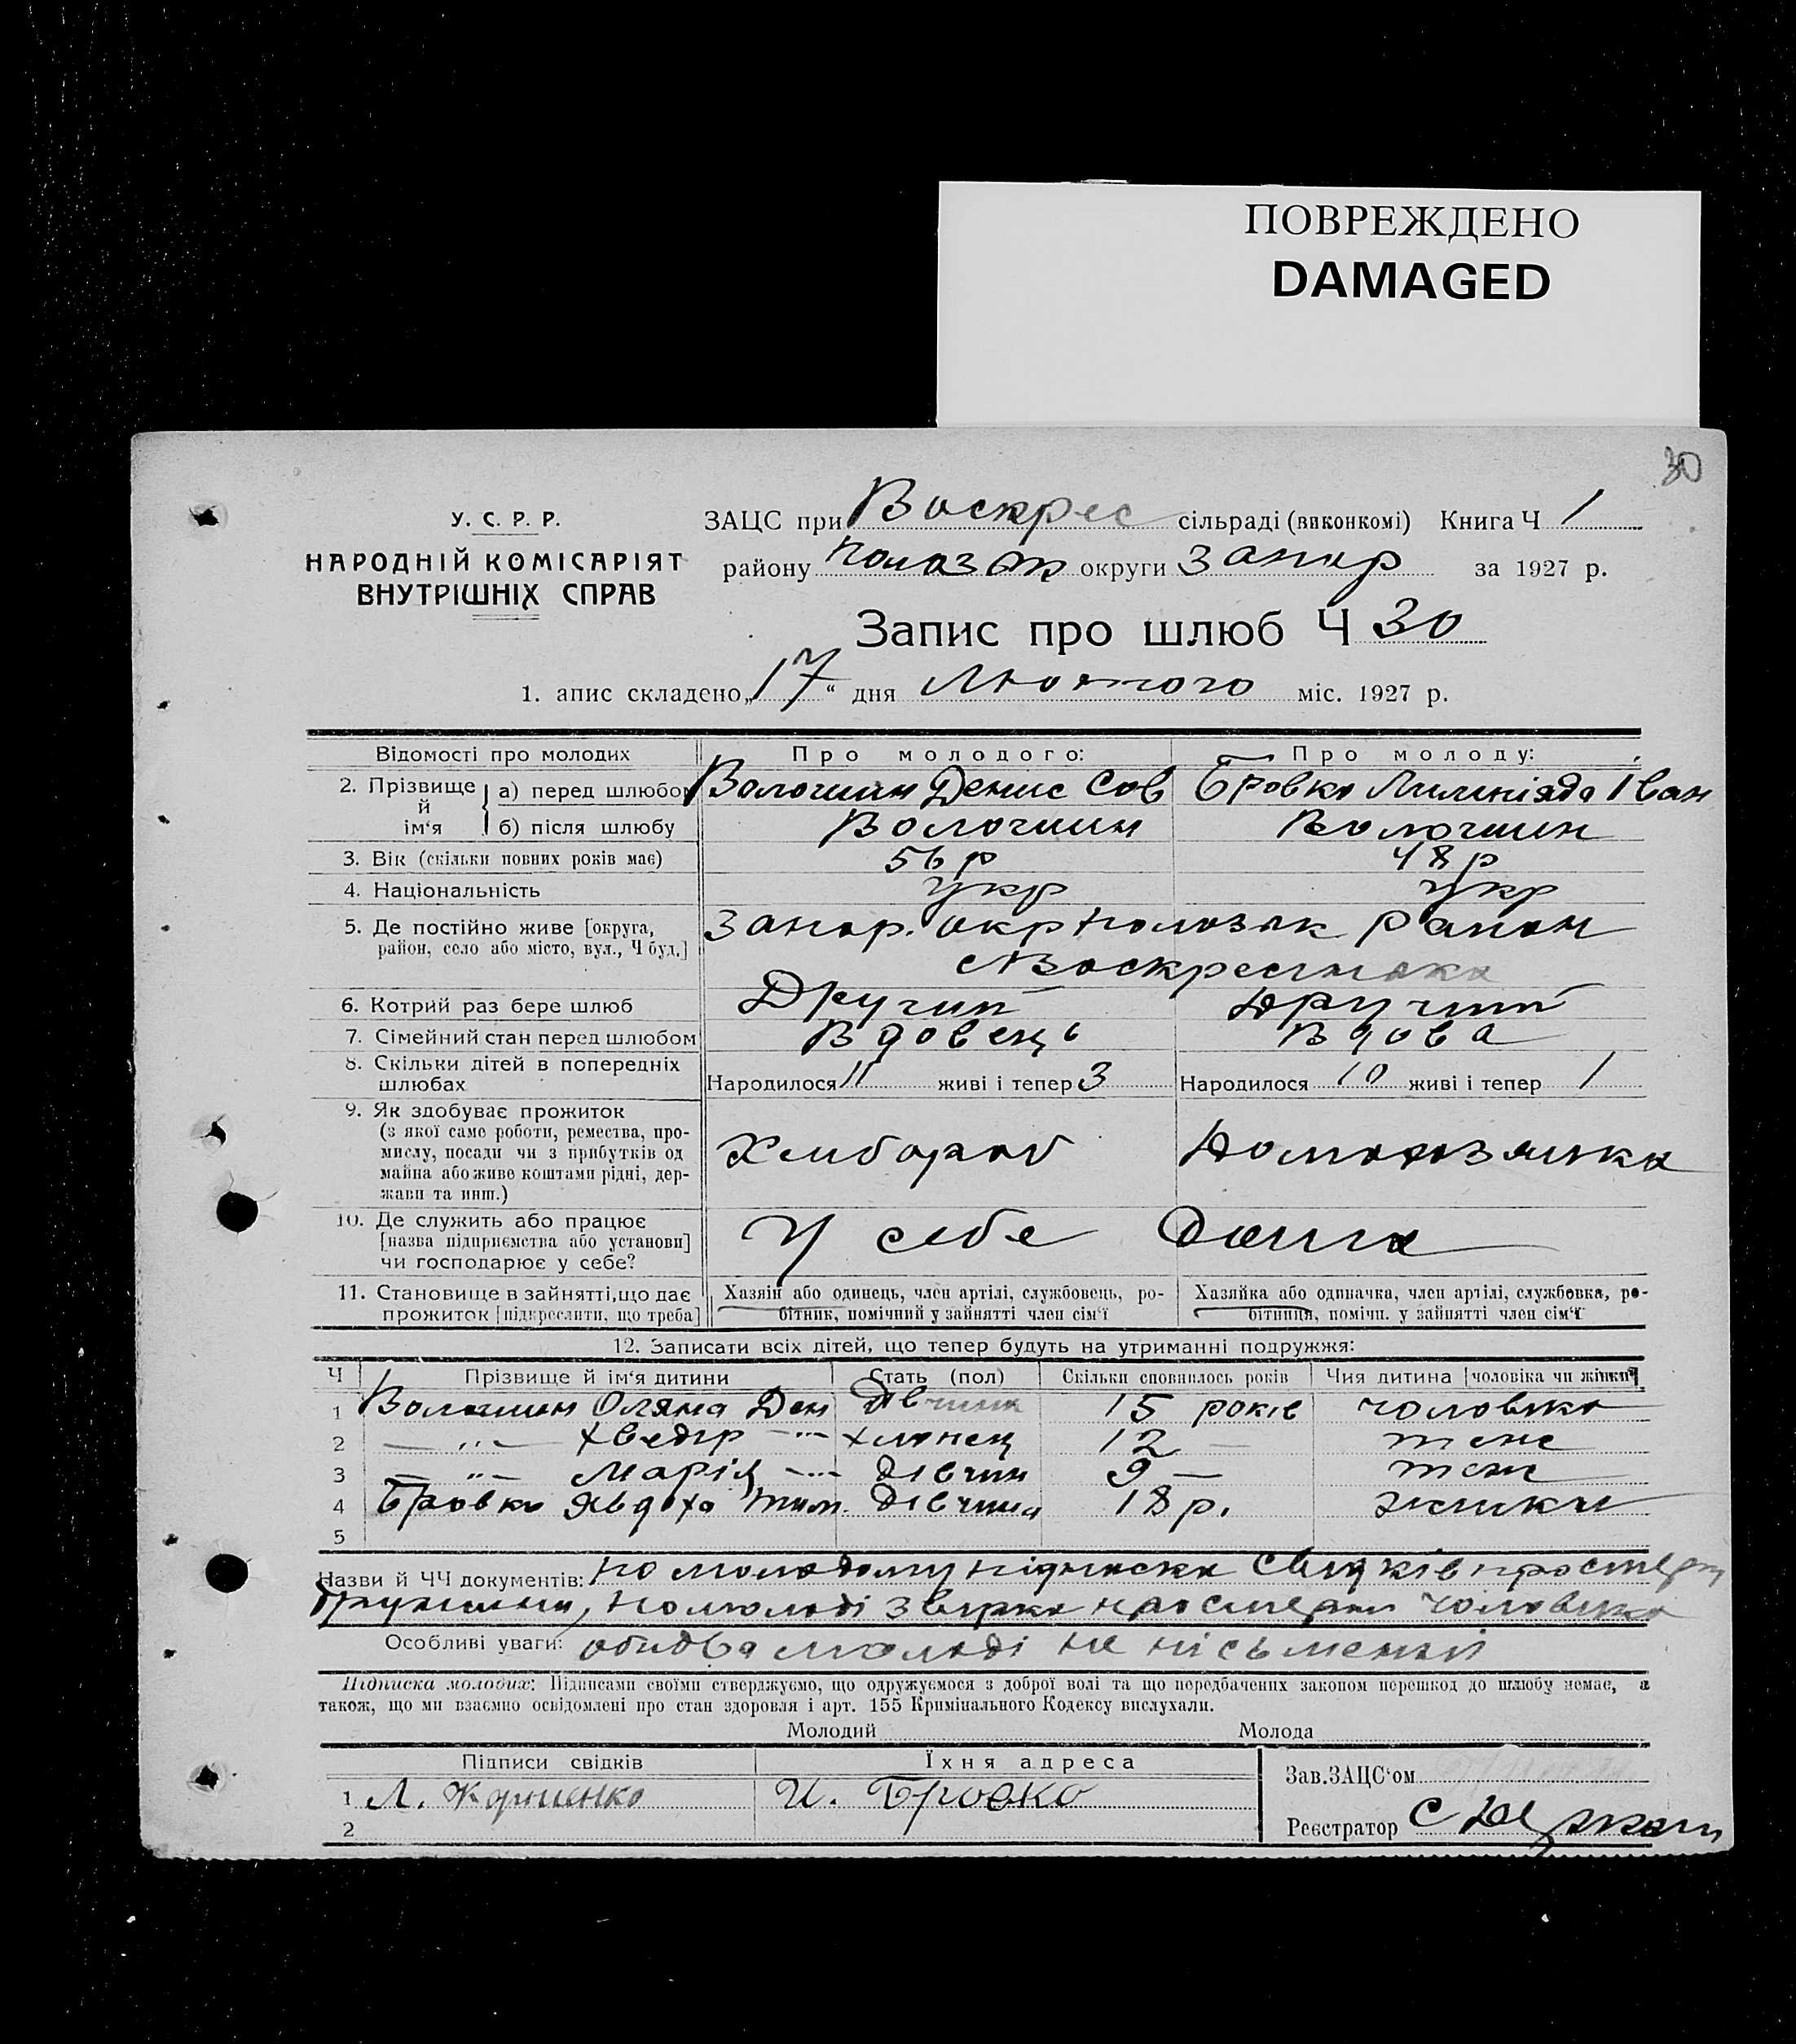 ПОВРЕЖДЕНО
DAMAGED
30
У. С. Р. Р.
НАРОДНІЙ КОМІСАРІЯТ
ВНУТРІШНІХ СПРАВ
ЗАЦС при Воскрес сільраді (виконкомі) Книга Ч 1
району округи Запор за 1927 р.
Запис про шлюб Ч 30
1. апис складено „17“ дня Лютого міс. 1927 р.
Відомості про молодих Про молодого: Про молоду:
2. Прізвище й ім‘я а) перед шлюбом Волошин Денис Сав Бровко Іван
б) після шлюбу Волошин Волошин
3. Вік (скільки повних років має) 56 р 48 р
4. Національність укр укр
5. Де постійно живе [округа, район, село або місто, вул., Ч буд.] Запор. окр район
с Воскресенка
6. Котрий раз бере шлюб Другий Другий
7. Сімейний стан перед шлюбом Вдовець Вдова
8. Скільки дітей в попередніх шлюбах Народилося 11 живі і тепер 3 Народилося 10 живі і тепер 1
9. Як здобуває прожиток
(з якої саме роботи, ремества, про-
мислу, посади чи з прибутків од
майна або живе коштами рідні, дер-
жави та инш.) Хлибороб Домохозяйка
10. Де служить або працює
[назва підприємства або установи]
чи господарює у себе? У себе Дома
11. Становище в зайнятті, що дає прожиток [підкреслити, що треба]
Хазяїн або одинець, член артілі, службовець, ро-
бітник, помічний у зайнятті член сім‘ї
Хазяйка або одиначка, член артілі, службовка, ро-
бітниця, помічн. у зайнятті член сім‘ї
12. Записати всіх дітей, що тепер будуть на утриманні подружжя:
Ч Прізвище й ім‘я дитини Стать (пол) Скільки сповнилось років Чия дитина [чоловіка чи жінки]
1 Волошин Оляна Ден Дівчина 15 років чоловіка
2 — „ — Хведір — „ — хлопец 12 — теж
3 — „ — Марія — „ — дівчин 9 — теж
4 Бровко Явдоха Тим. дівчина 18 р. жинки
5
Назви й ЧЧ документів: по молодому підписка свидків про смерт
дружини, по молоді звирка про смерть чоловика
Особливі уваги: обидва молоді не письменні
Підписка молодих: Підписами своїми стверджуємо, що одружуємося з доброї волі та що передбачених законом перешкод до шлюбу немає, а
також, що ми взаємно освідомлені про стан здоровля і арт. 155 Кримінального Кодексу вислухали.
Молодий Молода
Підписи свідків Їхня адреса
1 Л. И. Бровко
2
Зав.ЗАЦС‘ом
Реєстратор